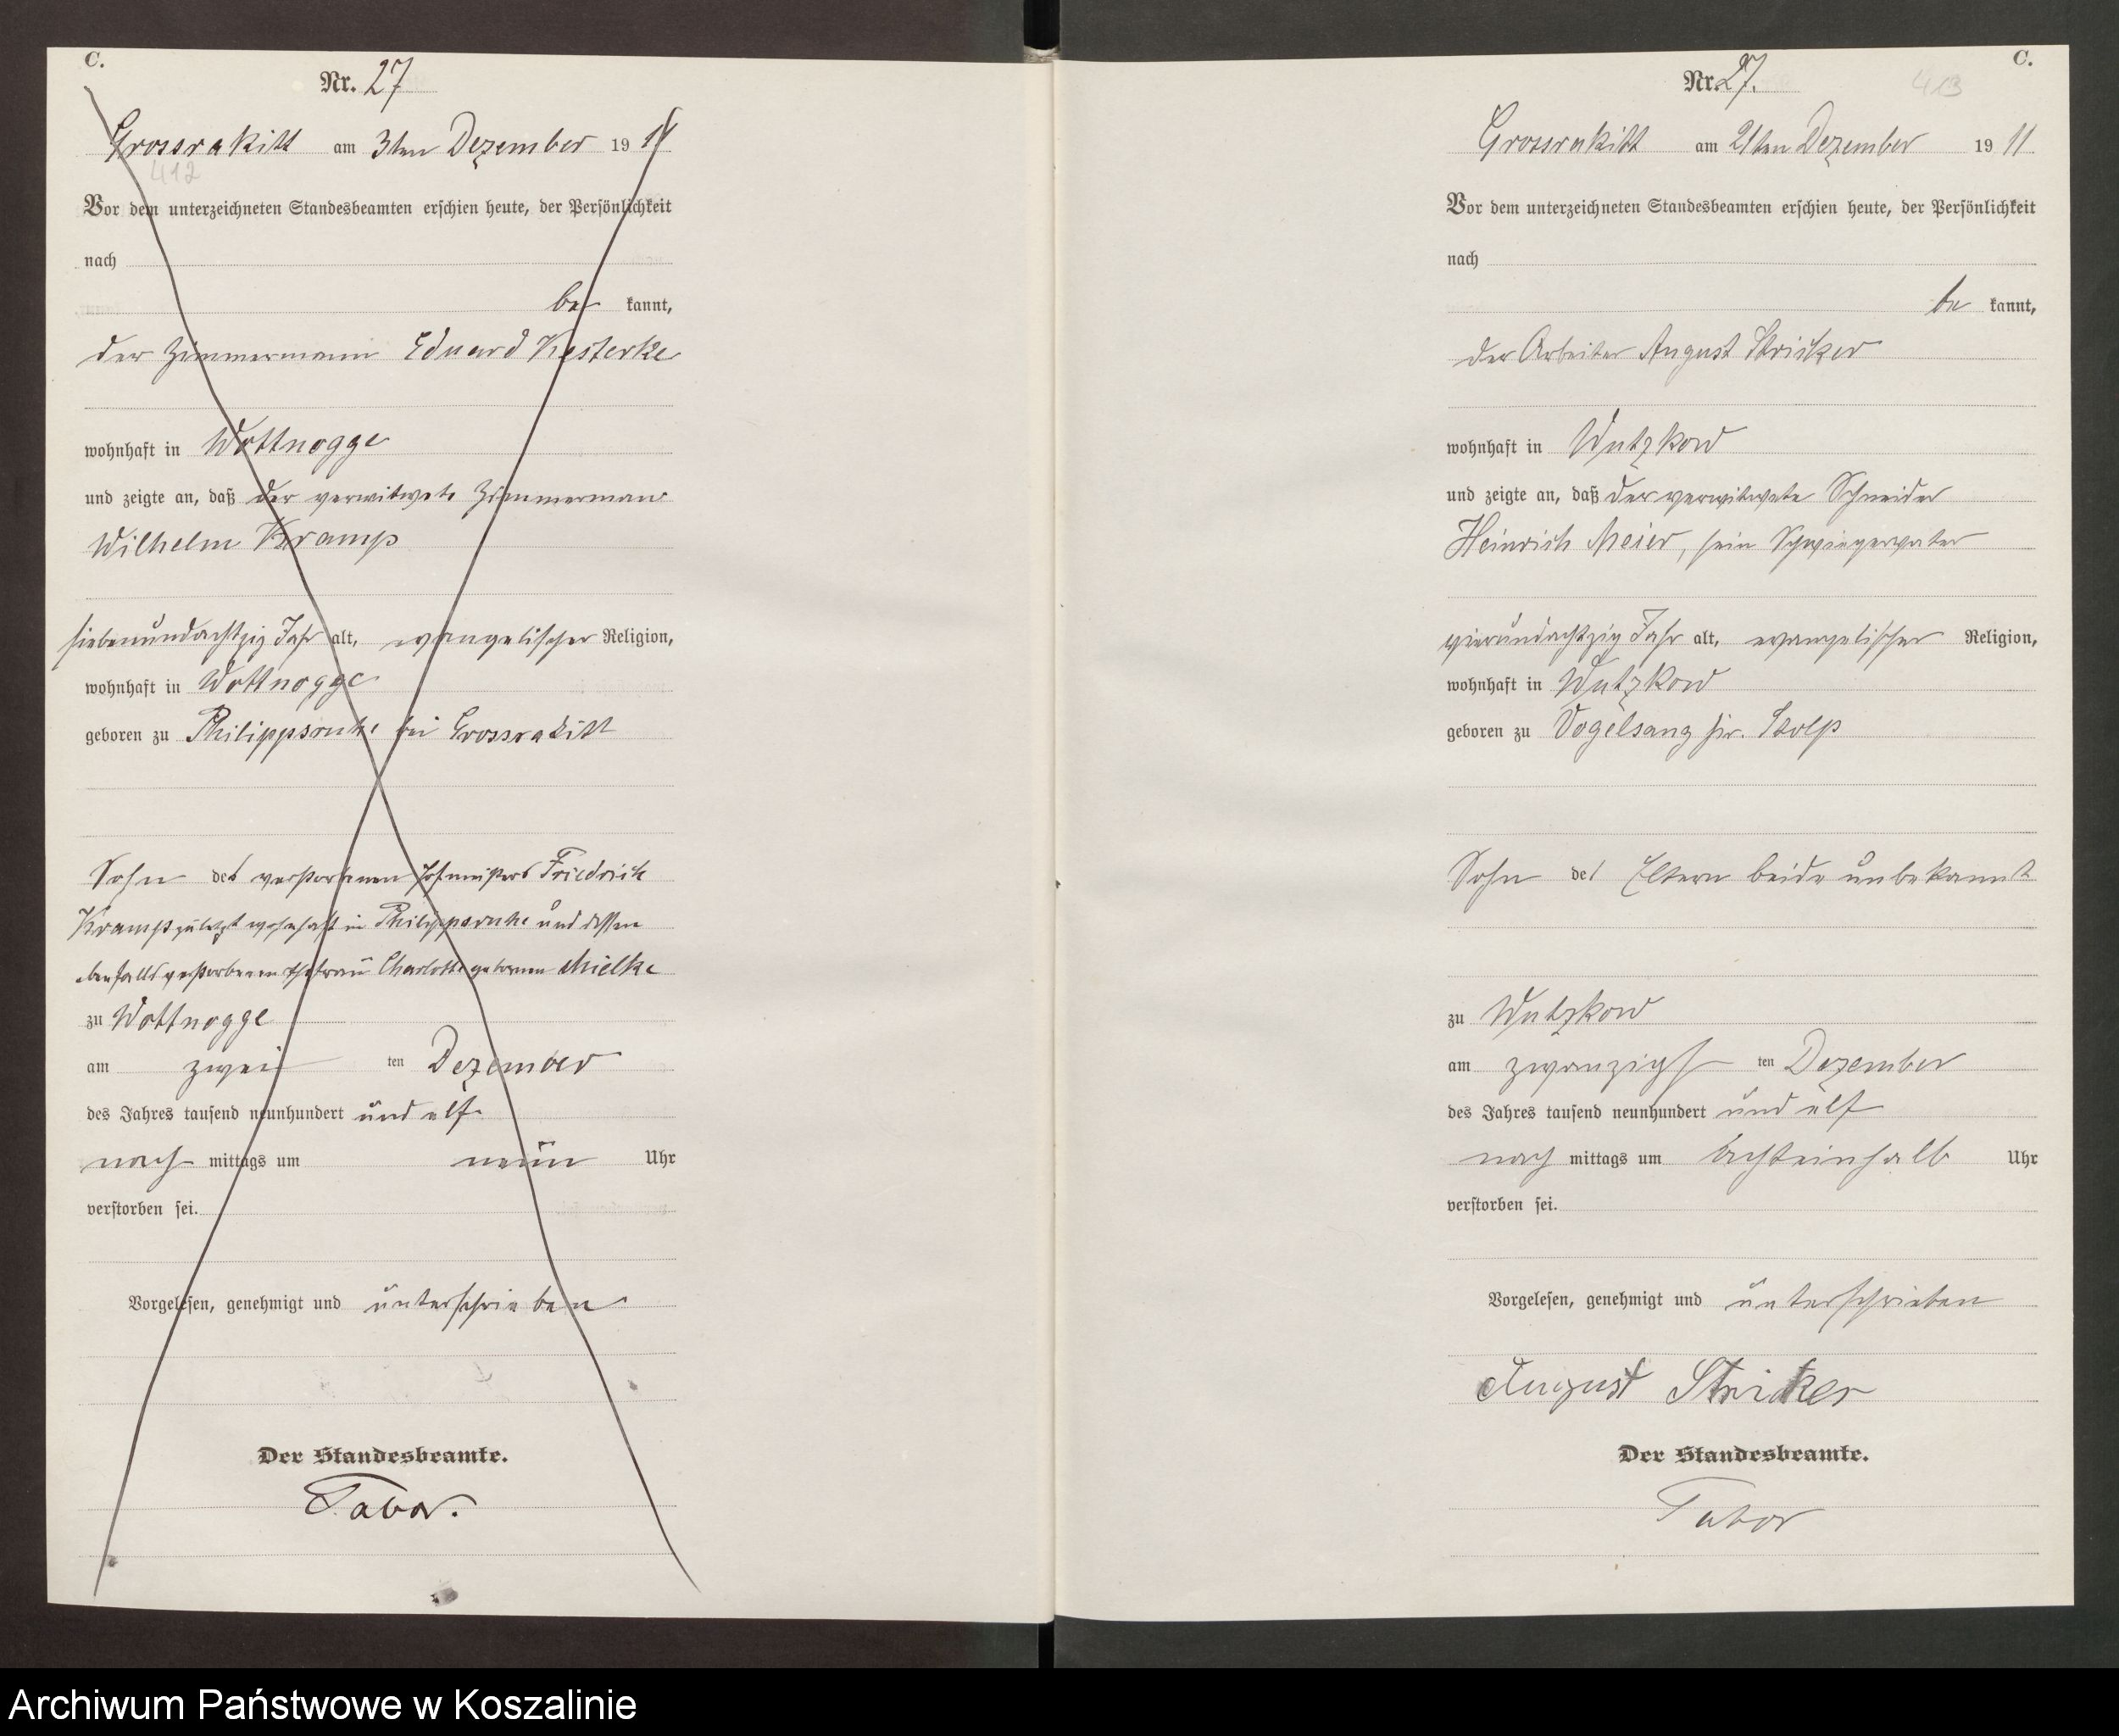 C.
Nr. 27
Grossrakitt am 3ten Dezember 1911
412
Vor dem unterzeichneten Standesbeamten erschien heute, der Persönlichkeit
nach
be kannt,
der Zimmermann Eduard Kesterke
wohnhaft in Wottnogge
und zeigte an, daß der verwitwete Zimmermann
Wilhelm Kramp
siebenundachtzig Jahr alt, evangelischer Religion,
wohnhaft in Wottnogge
geboren zu Philippsruhe bei Grossrakitt
Sohn des verstorbenen Hofmeisters Friedrich
Kramp zuletzt wohnhaft in Philippsruhe und dessen
ebenfalls verstorbenen Ehefrau Charlotte geborenen Mielke
zu Wottnogge
am zwei ten Dezember
des Jahres tausend neunhundert und elf
nach mittags um neun Uhr
verstorben sei.
Vorgelesen, genehmigt und unterschrieben
Der Standesbeamte.
Tabor.
C.
Nr. 27.
413
Grossrakitt am 21ten Dezember 1911
Vor dem unterzeichneten Standesbeamten erschien heute, der Persönlichkeit
nach
be kannt,
der Arbeiter August Stricker
wohnhaft in Wutzkow
und zeigte an, daß der verwitwete Schneider
Heinrich Meier, sein Schwiegervater
vierundachtzig Jahr alt, evangelischer Religion,
wohnhaft in Wutzkow
geboren zu Vogelsang Stolp
Sohn de/ Eltern beide unbekannt
zu Wutzkow
am zwanzigs ten Dezember
des Jahres tausend neunhundert und elf
nach mittags um achteinhalb Uhr
verstorben sei.
Vorgelesen, genehmigt und unterschrieben
August Stricker
Der Standesbeamte.
Tabor
Archiwum Państwowe w Koszalinie